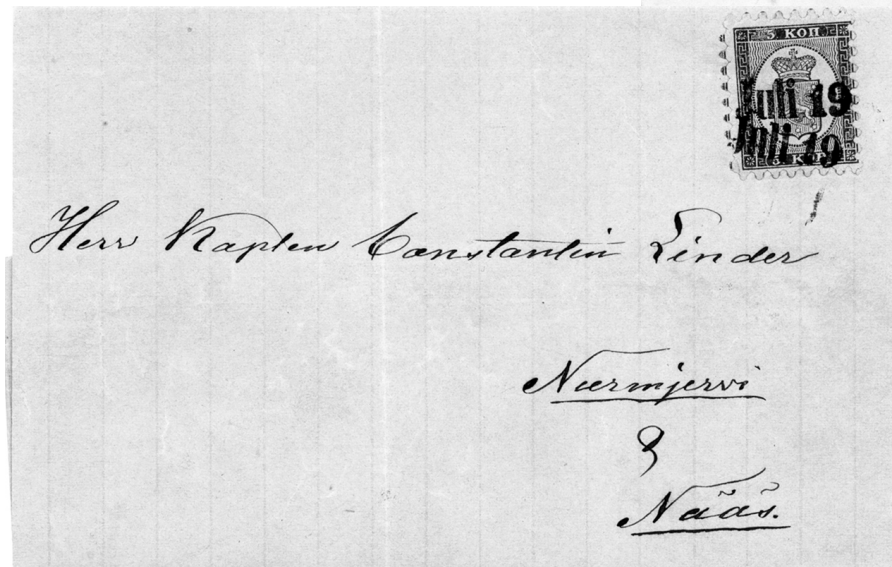 5 КОП
Juli 19
Juli 19
5 KOP
Herr Kapten Constantin Linder
Nurmjervi
&
Nääs.